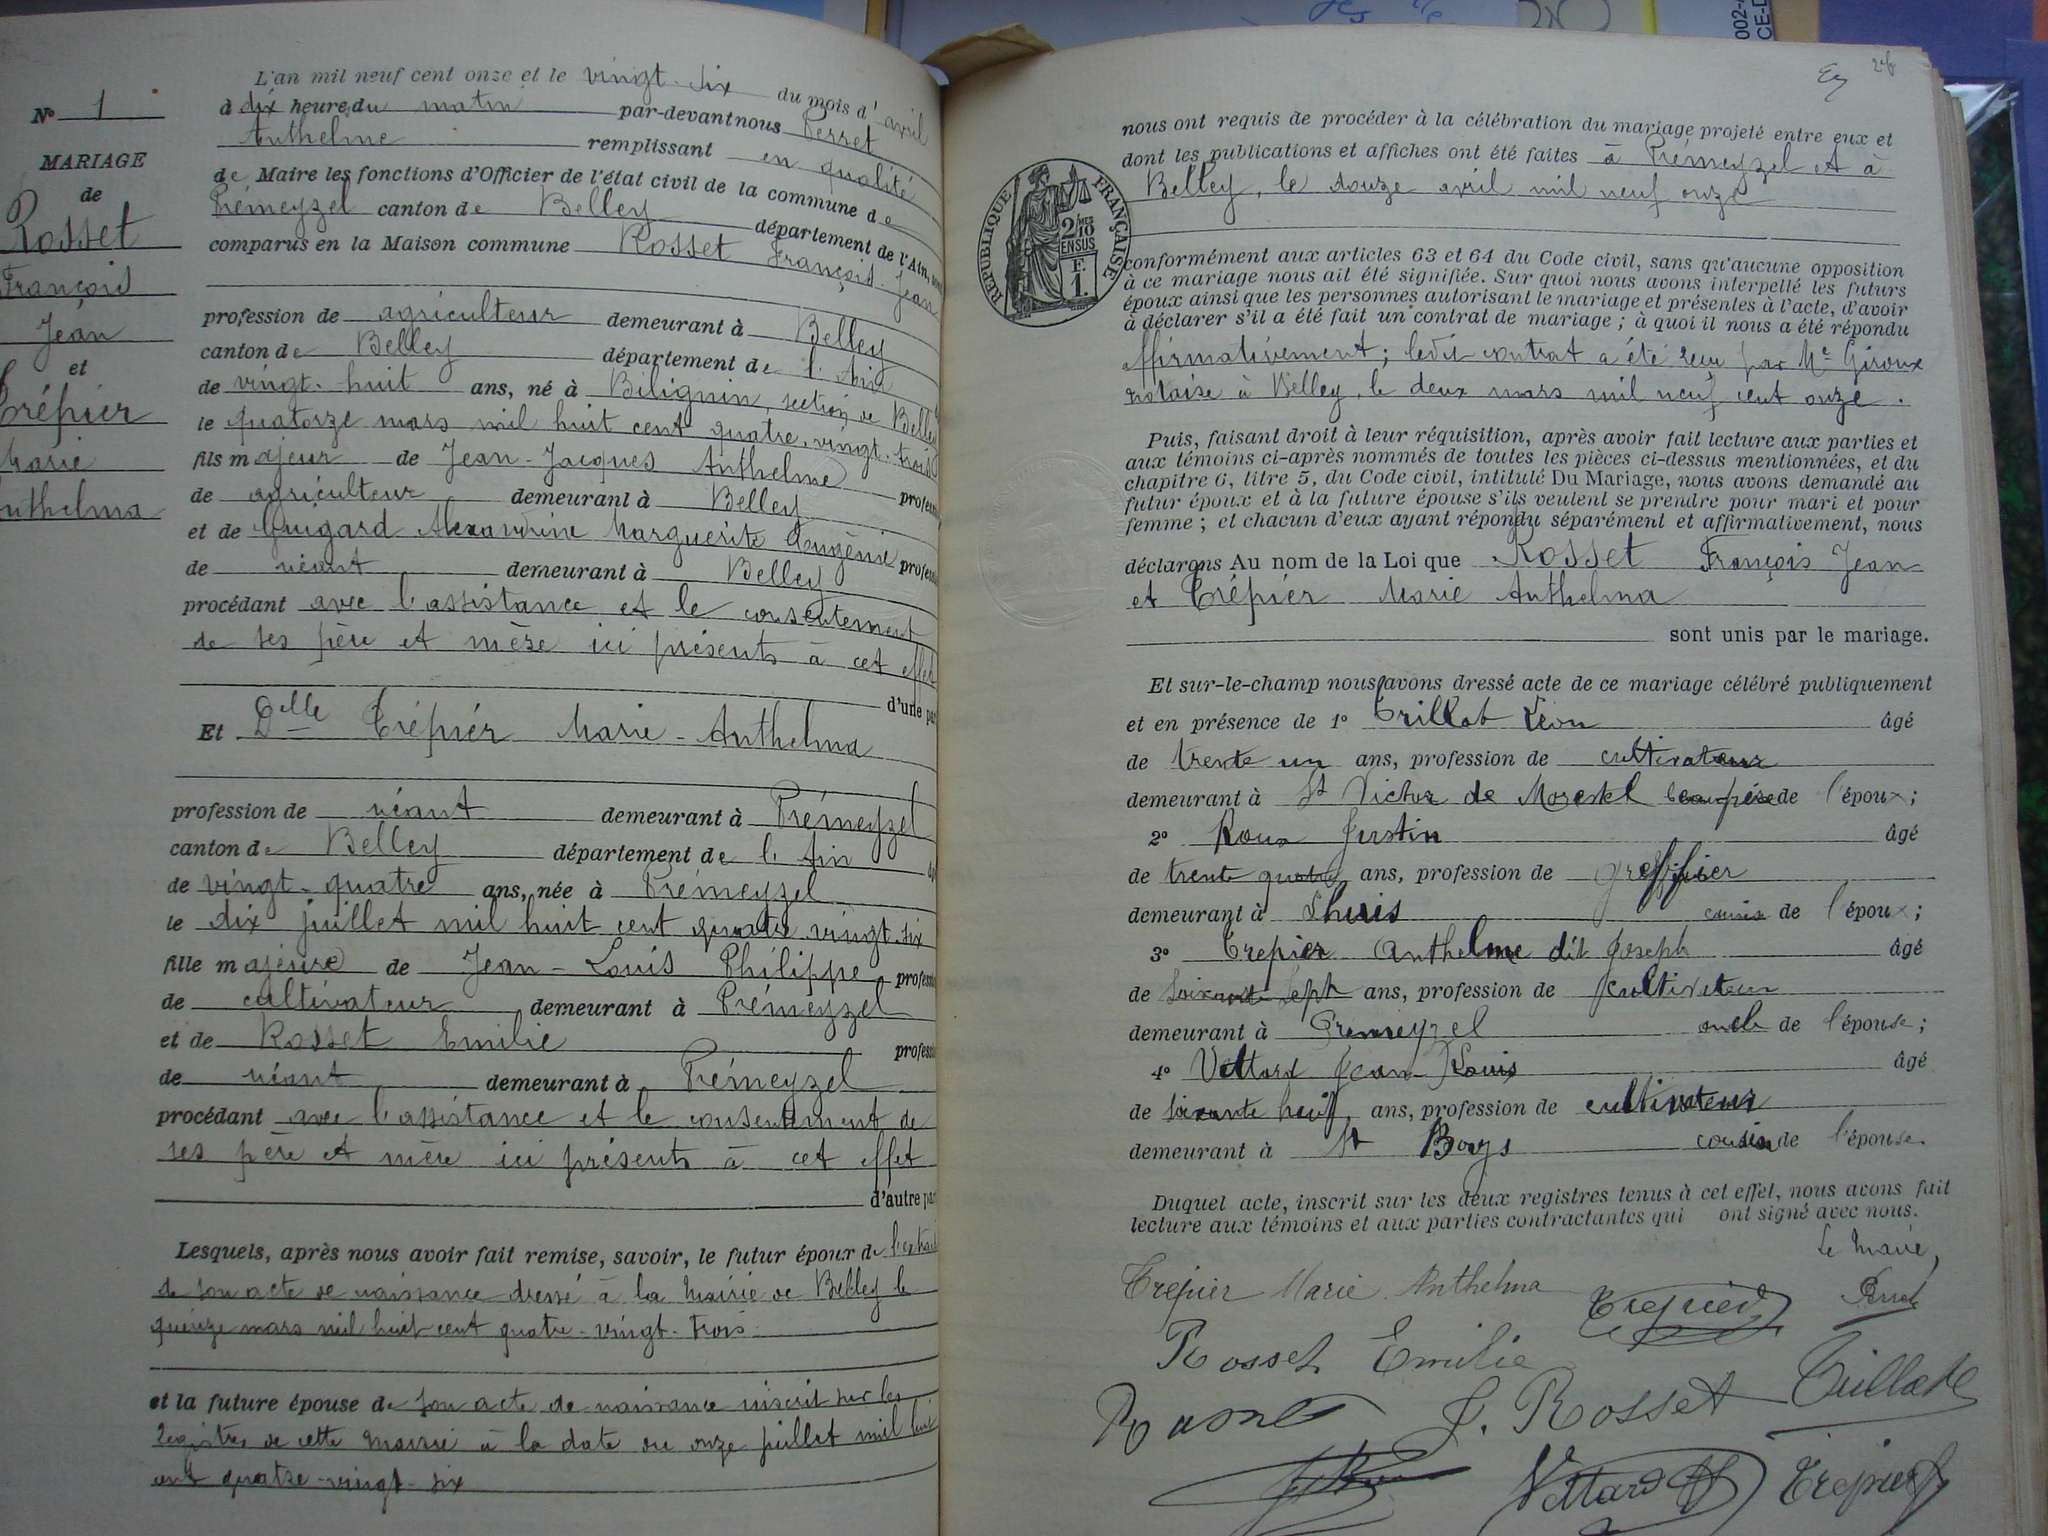 N° 1
MARIAGE
de
Rosset
François
Jean
et
Trépier
Marie
Anthelma
L'an mil neuf cent onze et le vingt-six du mois d'avril
à dix heure du matin par-devant nous Perret
Anthelme remplissant en qualité
de Maire les fonctions d'Officier de l'état civil de la commune de
Prémeyzel canton de Belley département de l'Ain,
comparus en la Maison commune Rosset François-Jean
profession de agriculteur demeurant à Belley
canton de Belley département de l'Ain
de vingt-huit ans, né à Bilignin, section de Belley
le quatorze mars mil huit cent quatre-vingt-trois
fils majeur de Jean-Jacques Anthelme
de agriculteur demeurant à Belley
et de Guigard Alexandrine Marguerite Eugénie
de néant demeurant à Belley
procédant avec l'assistance et le consentement
de ses père et mère ici présents à cet effet
d'une par
Et Delle Trépier Marie-Anthelma
profession de néant demeurant à Prémeyzel
canton de Belley département de l'Ain
de vingt-quatre ans, née à Prémeyzel
le dix juillet mil huit cent quatre vingt-six
fille majeure de Jean-Louis Philippe
de cultivateur demeurant à Prémeyzel
et de Rosset Emilie
de néant demeurant à Prémeyzel
procédant avec l'assistance et le consentement de
ses père et mère ici présents à cet effet
d'autre par
Lesquels, après nous avoir fait remise, savoir, le futur époux de l'extrait
de son acte de naissance dressé à la Mairie de Belley le
quinze mars mil huit cent quatre-vingt-trois
et la future épouse de son acte de naissance inscrit sur les
registres de cette mairie à la date du onze juillet mil huit
cent quatre-vingt-six
26
nous ont requis de procéder à la célébration du mariage projeté entre eux et
dont les publications et affiches ont été faites à Prémeyzel et à
Belley, le douze avril mil neuf onze
RÉPUBLIQUE FRANÇAISE
2/10
EN SUS
F.
1.
conformément aux articles 63 et 64 du Code civil, sans qu'aucune opposition
à ce mariage nous ait été signifiée. Sur quoi nous avons interpellé les futurs
époux ainsi que les personnes autorisant le mariage et présentes à l'acte, d'avoir
à déclarer s'il a été fait un contrat de mariage ; à quoi il nous a été répondu
affirmativement ; ledit contrat a été reçu par Me Giroux
notaire à Belley, le deux mars mil neuf cent onze.
Puis, faisant droit à leur réquisition, après avoir fait lecture aux parties et
aux témoins ci-après nommés de toutes les pièces ci-dessus mentionnées, et du
chapitre 6, titre 5, du Code civil, intitulé Du Mariage, nous avons demandé au
futur époux et à la future épouse s'ils veulent se prendre pour mari et pour
femme ; et chacun d'eux ayant répondu séparément et affirmativement, nous
déclarons Au nom de la Loi que Rosset François Jean
et Trépier Marie Anthelma
sont unis par le mariage.
Et sur-le-champ nous avons dressé acte de ce mariage célébré publiquement
et en présence de 1° Trillat Léon âgé
de trente un ans, profession de cultivateur
demeurant à St Victor de Morestel beau-frère de l'époux ;
2° Roux Justin âgé
de trente quatre ans, profession de greffier
demeurant à Lhuis cousin de l'époux ;
3° Trepier Anthelme dit Joseph âgé
de soixante sept ans, profession de cultivateur
demeurant à Prémeyzel oncle de l'épouse ;
4° Vettard Jean Louis âgé
de soixante neuf ans, profession de cultivateur
demeurant à St Boys cousin de l'épouse.
Duquel acte, inscrit sur les deux registres tenus à cet effet, nous avons fait
lecture aux témoins et aux parties contractantes qui ont signé avec nous.
Le Maire,
Trepier Marie Anthelma Trepier Perret
Rosset Emilie
J. Rosset Trillat
Vettard Trepier